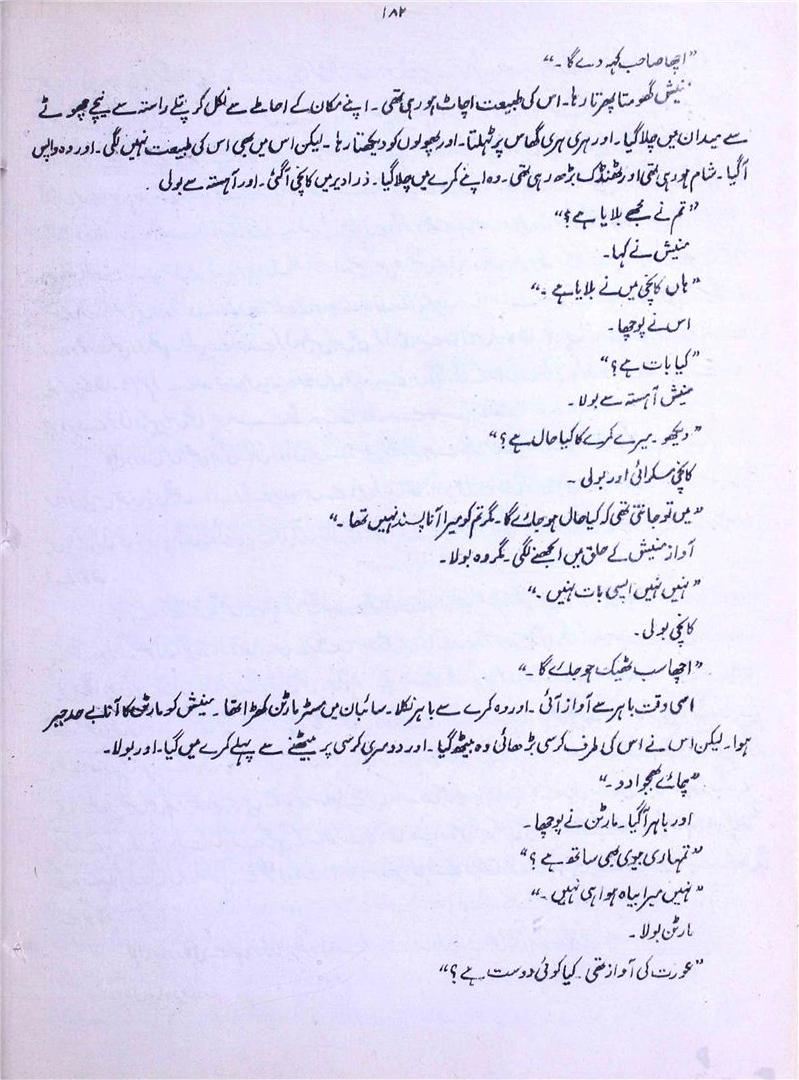 ۱۸۲
”اچھا صاحب کہہ دے گا۔“
منیش گھومتا پھرتا رہا۔ اس کی طبیعت اچاٹ ہو رہی تھی۔ اپنے مکان کے احاطے سے نکل کر پتلے راستہ سے نیچے چھوٹے
سے میدان میں چلا گیا۔ اور ہری ہری گھاس پر ٹہلتا۔ اور پھولوں کو دیکھتا رہا۔ لیکن اس میں بھی اس کی طبیعت نہیں لگی۔ اور وہ واپس
آگیا۔ شام ہو رہی تھی اور ٹھنڈک بڑھ رہی تھی۔ وہ اپنے کمرے میں چلا گیا۔ ذرا دیر میں کانچی آگئی۔ اور آہستہ سے بولی
”تم نے مجھے بلایا ہے؟“
منیش نے کہا۔
”ہاں کانچی میں نے بلایا ہے۔“
اس نے پوچھا۔
”کیا بات ہے؟“
منیش آہستہ سے بولا۔
”دیکھو۔ میرے کمرے کا کیا حال ہے؟“
کانچی مسکرائی اور بولی۔
”میں تو جانتی تھی کہ کیا حال ہو جائے گا۔ مگر تم کو میرا آنا پسند نہیں تھا۔“
آواز منیش کے حلق میں الجھنے لگی۔ مگر وہ بولا۔
”نہیں نہیں ایسی بات نہیں۔“
کانچی بولی۔
”اچھا سب ٹھیک ہو جائے گا۔“
اسی وقت باہر سے آواز آئی۔ اور وہ کمرے سے باہر نکلا۔ سائبان میں مسٹر مارٹن کھڑا تھا۔ منیش کو مارٹن کا آنا بے حد جبر
ہوا۔ لیکن اس نے اس کی طرف کرسی بڑھائی وہ بیٹھ گیا۔ اور دوسری کرسی پر بیٹھنے سے پہلے کمرے میں گیا۔ اور بولا۔
”چائے بھجوا دو۔“
اور باہر آگیا۔ مارٹن نے پوچھا
”تمہاری بیوی بھی ساتھ ہے؟“
”نہیں میرا بیاہ ہوا ہی نہیں۔“
مارٹن بولا۔
”عورت کی آواز تھی۔ کیا کوئی دوست ہے؟“